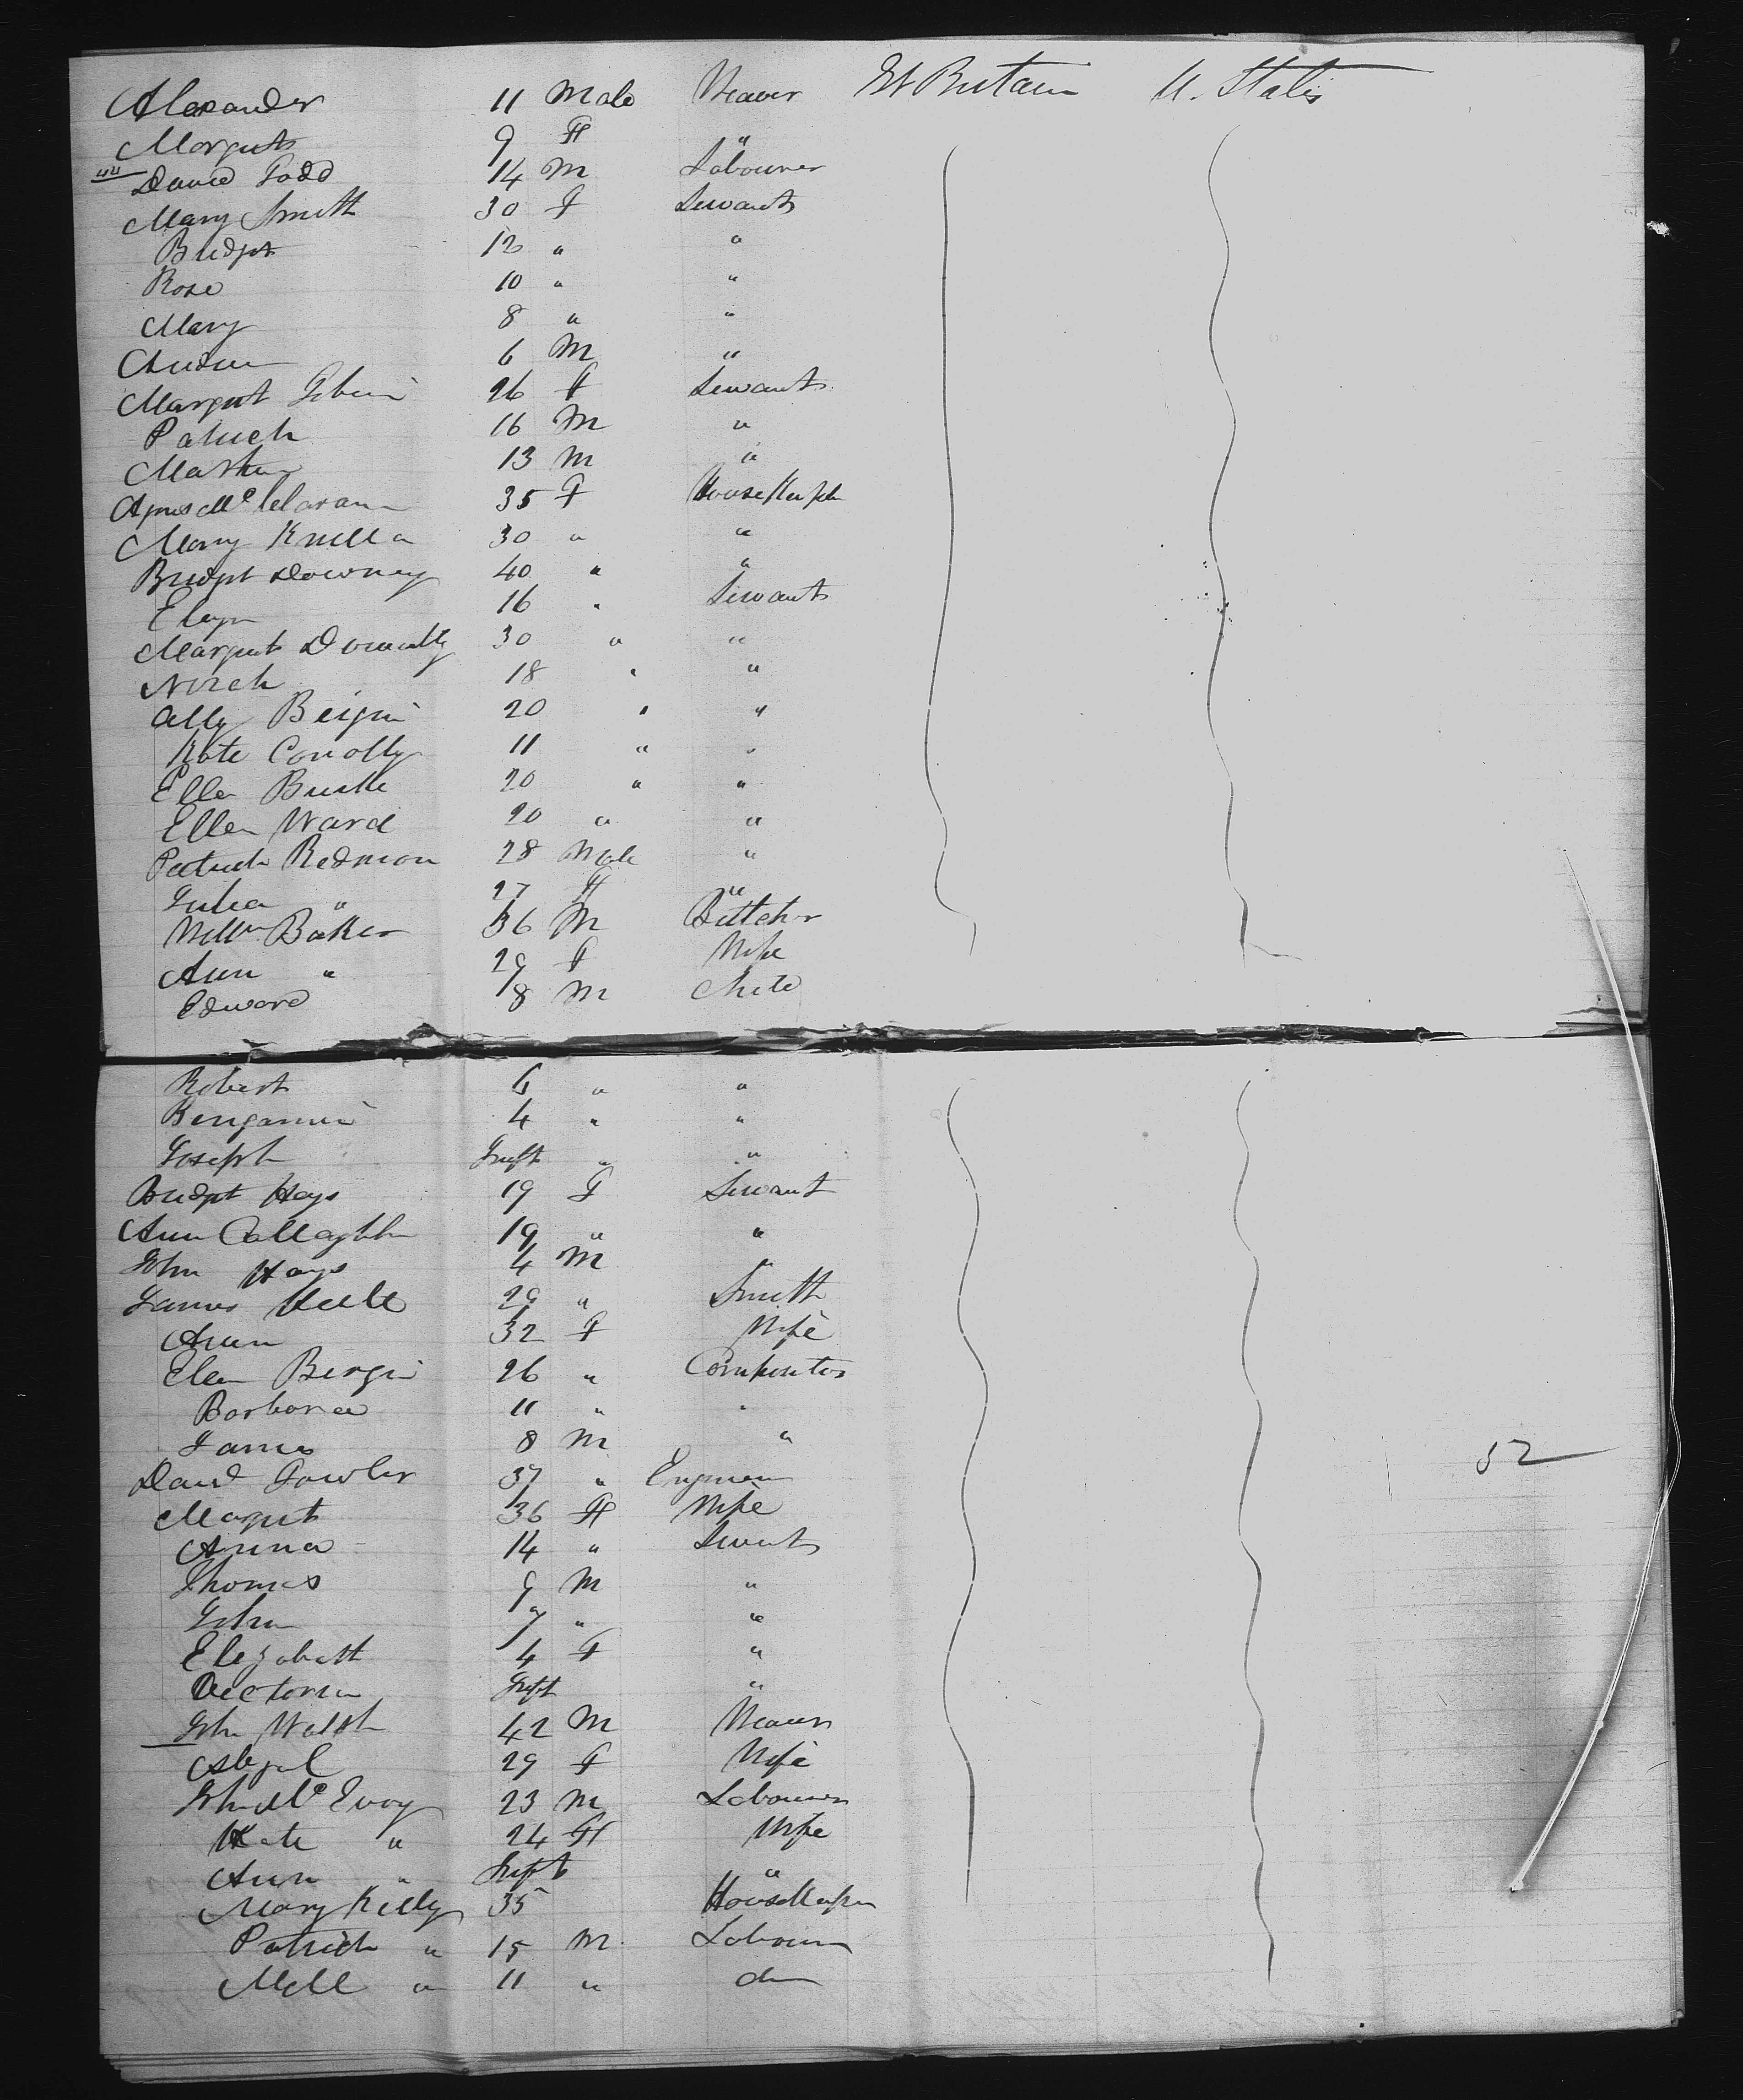 Alexander 11 Male Weaver Gt Britain U. States
Margret 9 F "
David Todd 14 M Labourer
Mary Smith 30 F Servant
Bridget 12 " "
Rose 10 " "
Mary 8 " "
6 M "
Margret 26 F Servant
Patrick 16 M "
Martin 13 M "
Agnes Mc 35 F House Keeper
Mary 30 " "
Bridget Downey 40 " "
16 " Servant
Margret 30 " "
Norah 18 " "
Ally 20 " "
Kate Conolly 11 " "
Ellen Burke 20 " "
Ellen Ward 20 " "
Patrick Redmon 28 Male "
Julia " 27 F "
Willm Baker 36 M Butcher
Ann " 29 F Wife
Edward 8 M Child
Robert 6 " "
Bengamin 4 " "
Joseph Inft " "
Bridget Hays 19 F Servant
Ann Callaghan 19 " "
John Hays 4 M "
James 29 " Smith
Ann 32 F Wife
Ellen Bergin 26 " Compositor
Barbara 11 " "
James 8 M "
David Fowler 37 " Engineer
Margret 36 F Wife
Anna 14 " Servant
Thomas 9 M "
John 7 " "
Elizabeth 4 F "
Victoria Inft "
John Walsh 42 M Weaver
Abigal 29 F Wife
John Mc Evoy 23 M Labourer
Kate " 24 F Wife
Ann " Inft "
Mary Kelly 35 House Keeper
Patrick " 15 M Labourer
" 11 " do
52